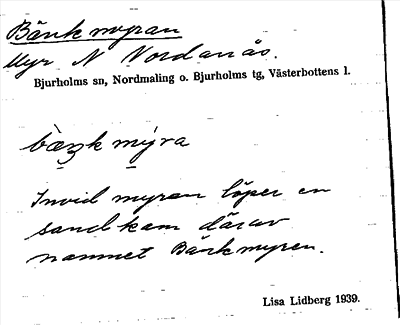 Bänkmyran
Myr N Nordanås.
Bjurholms sn, Nordmaling o. Bjurholms tg, Västerbottens l.
bæŋkmýra
Invid myran löper en
sandkam därav
namnet Bänkmyren.
Lisa Lidberg 1939.